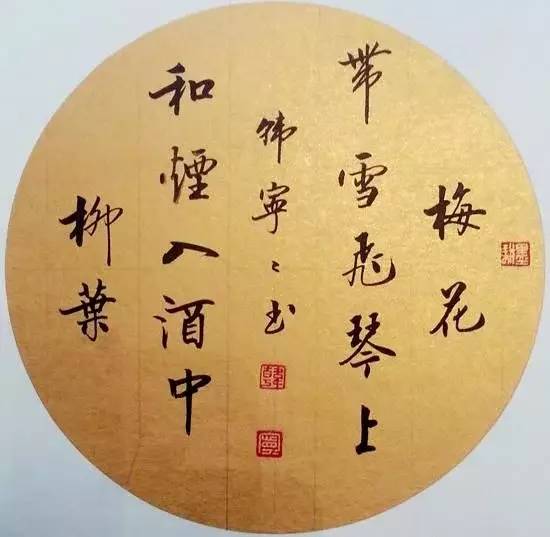 梅花
帶雪飛琴上
柳葉
和煙入酒中
韩寧〻书